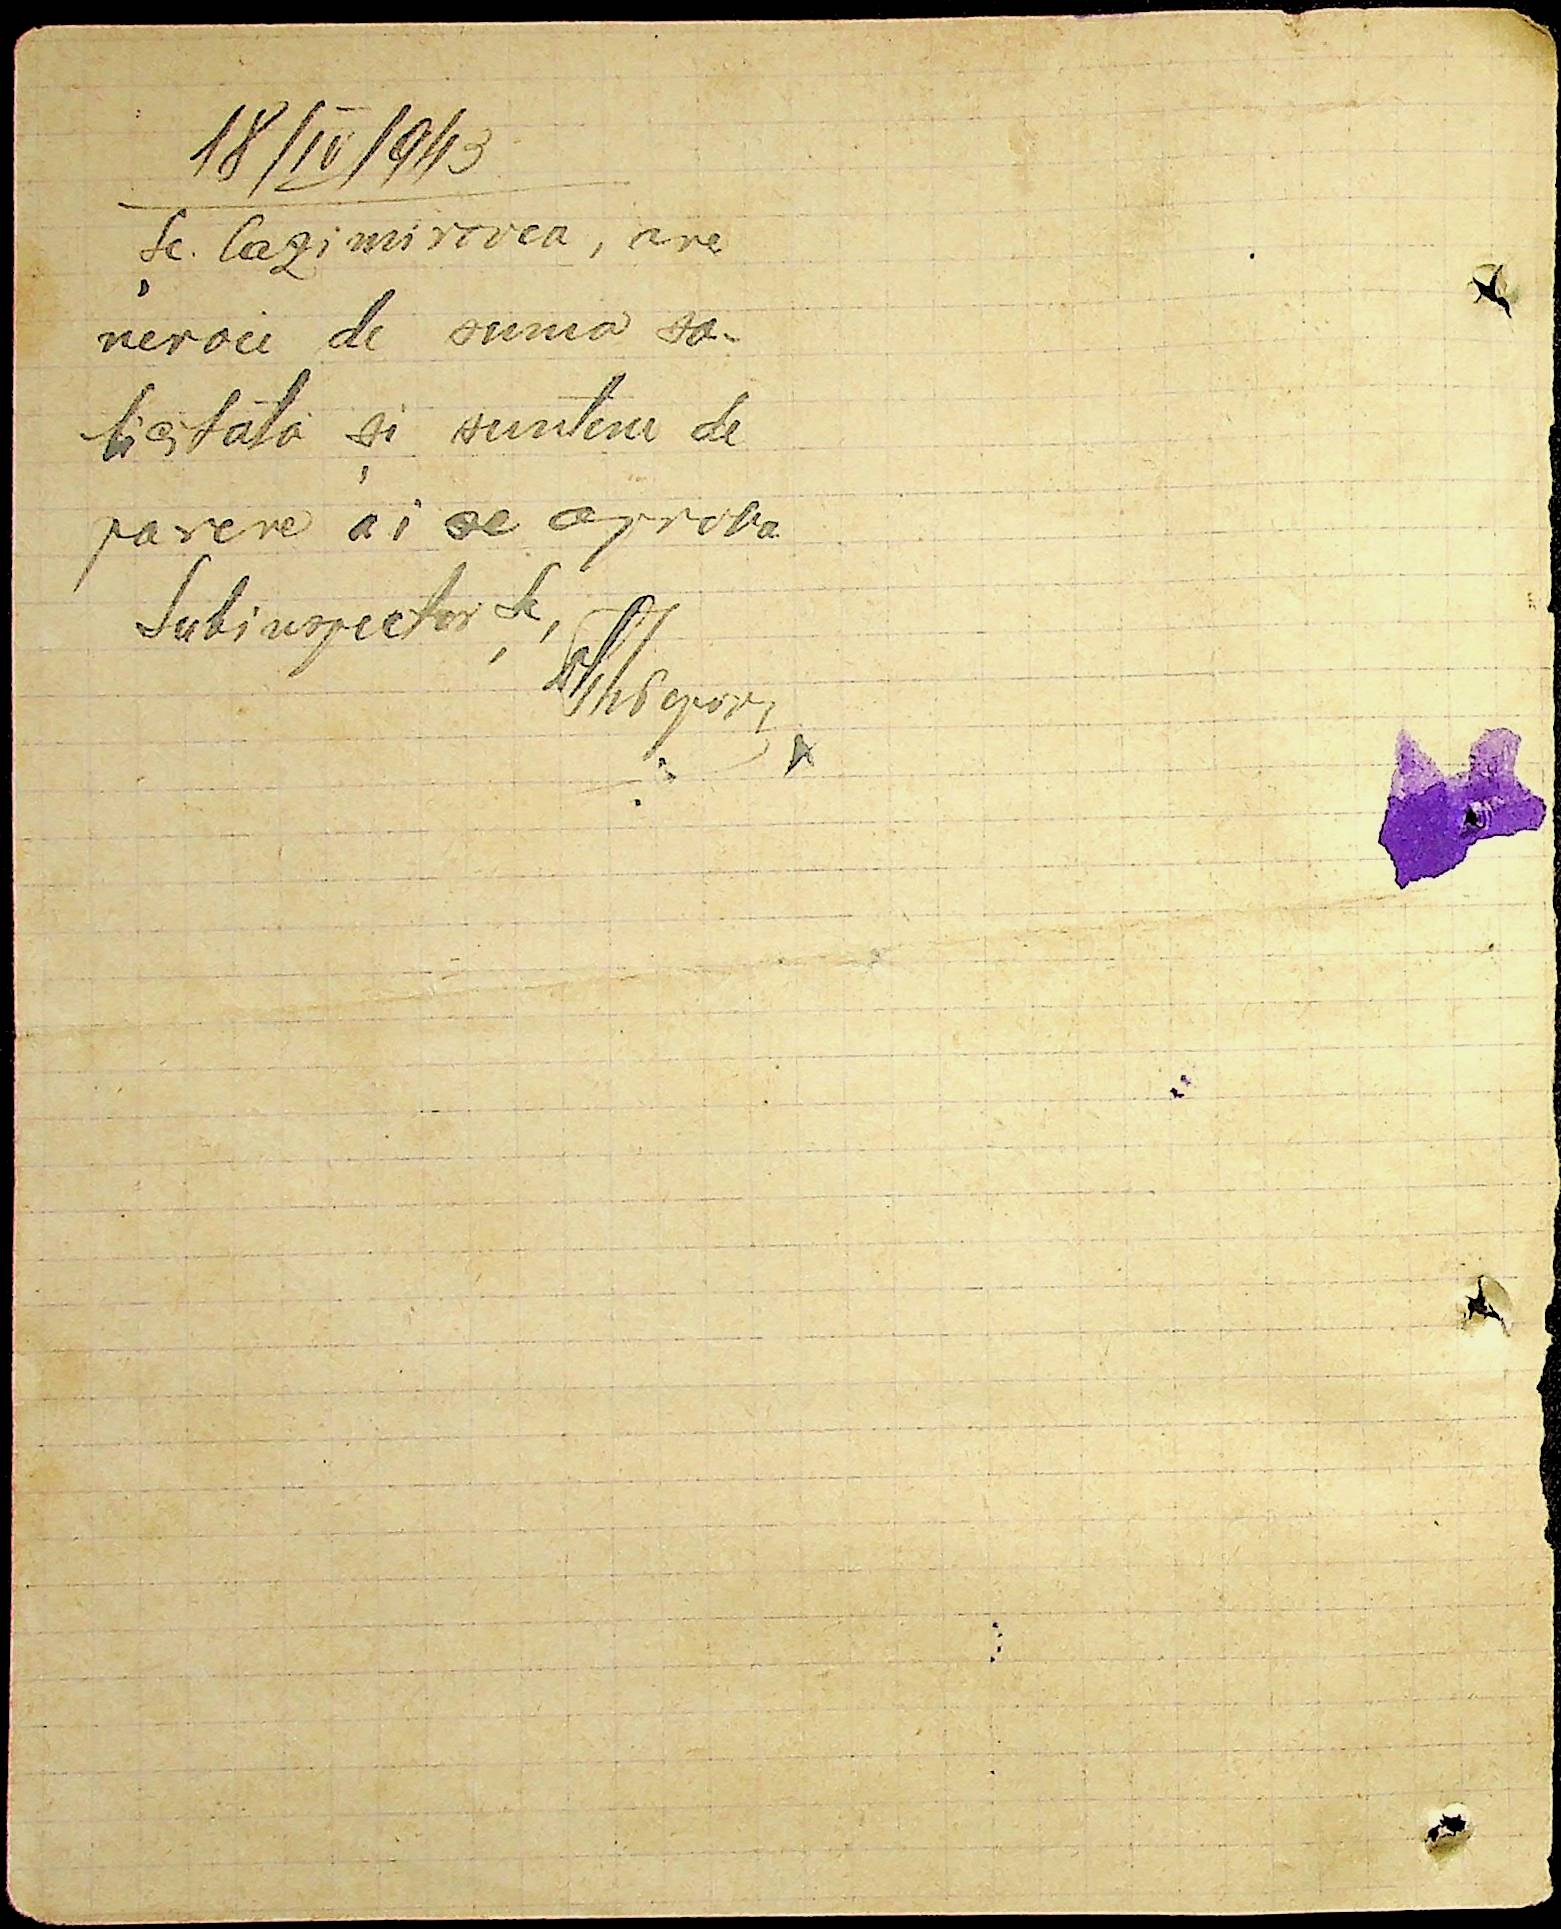 18/IV/943
Șc. Cazimirovca, are
nevoie de suma so-
licitată și suntem de
parere ai se aproba
Subinspector Șc,